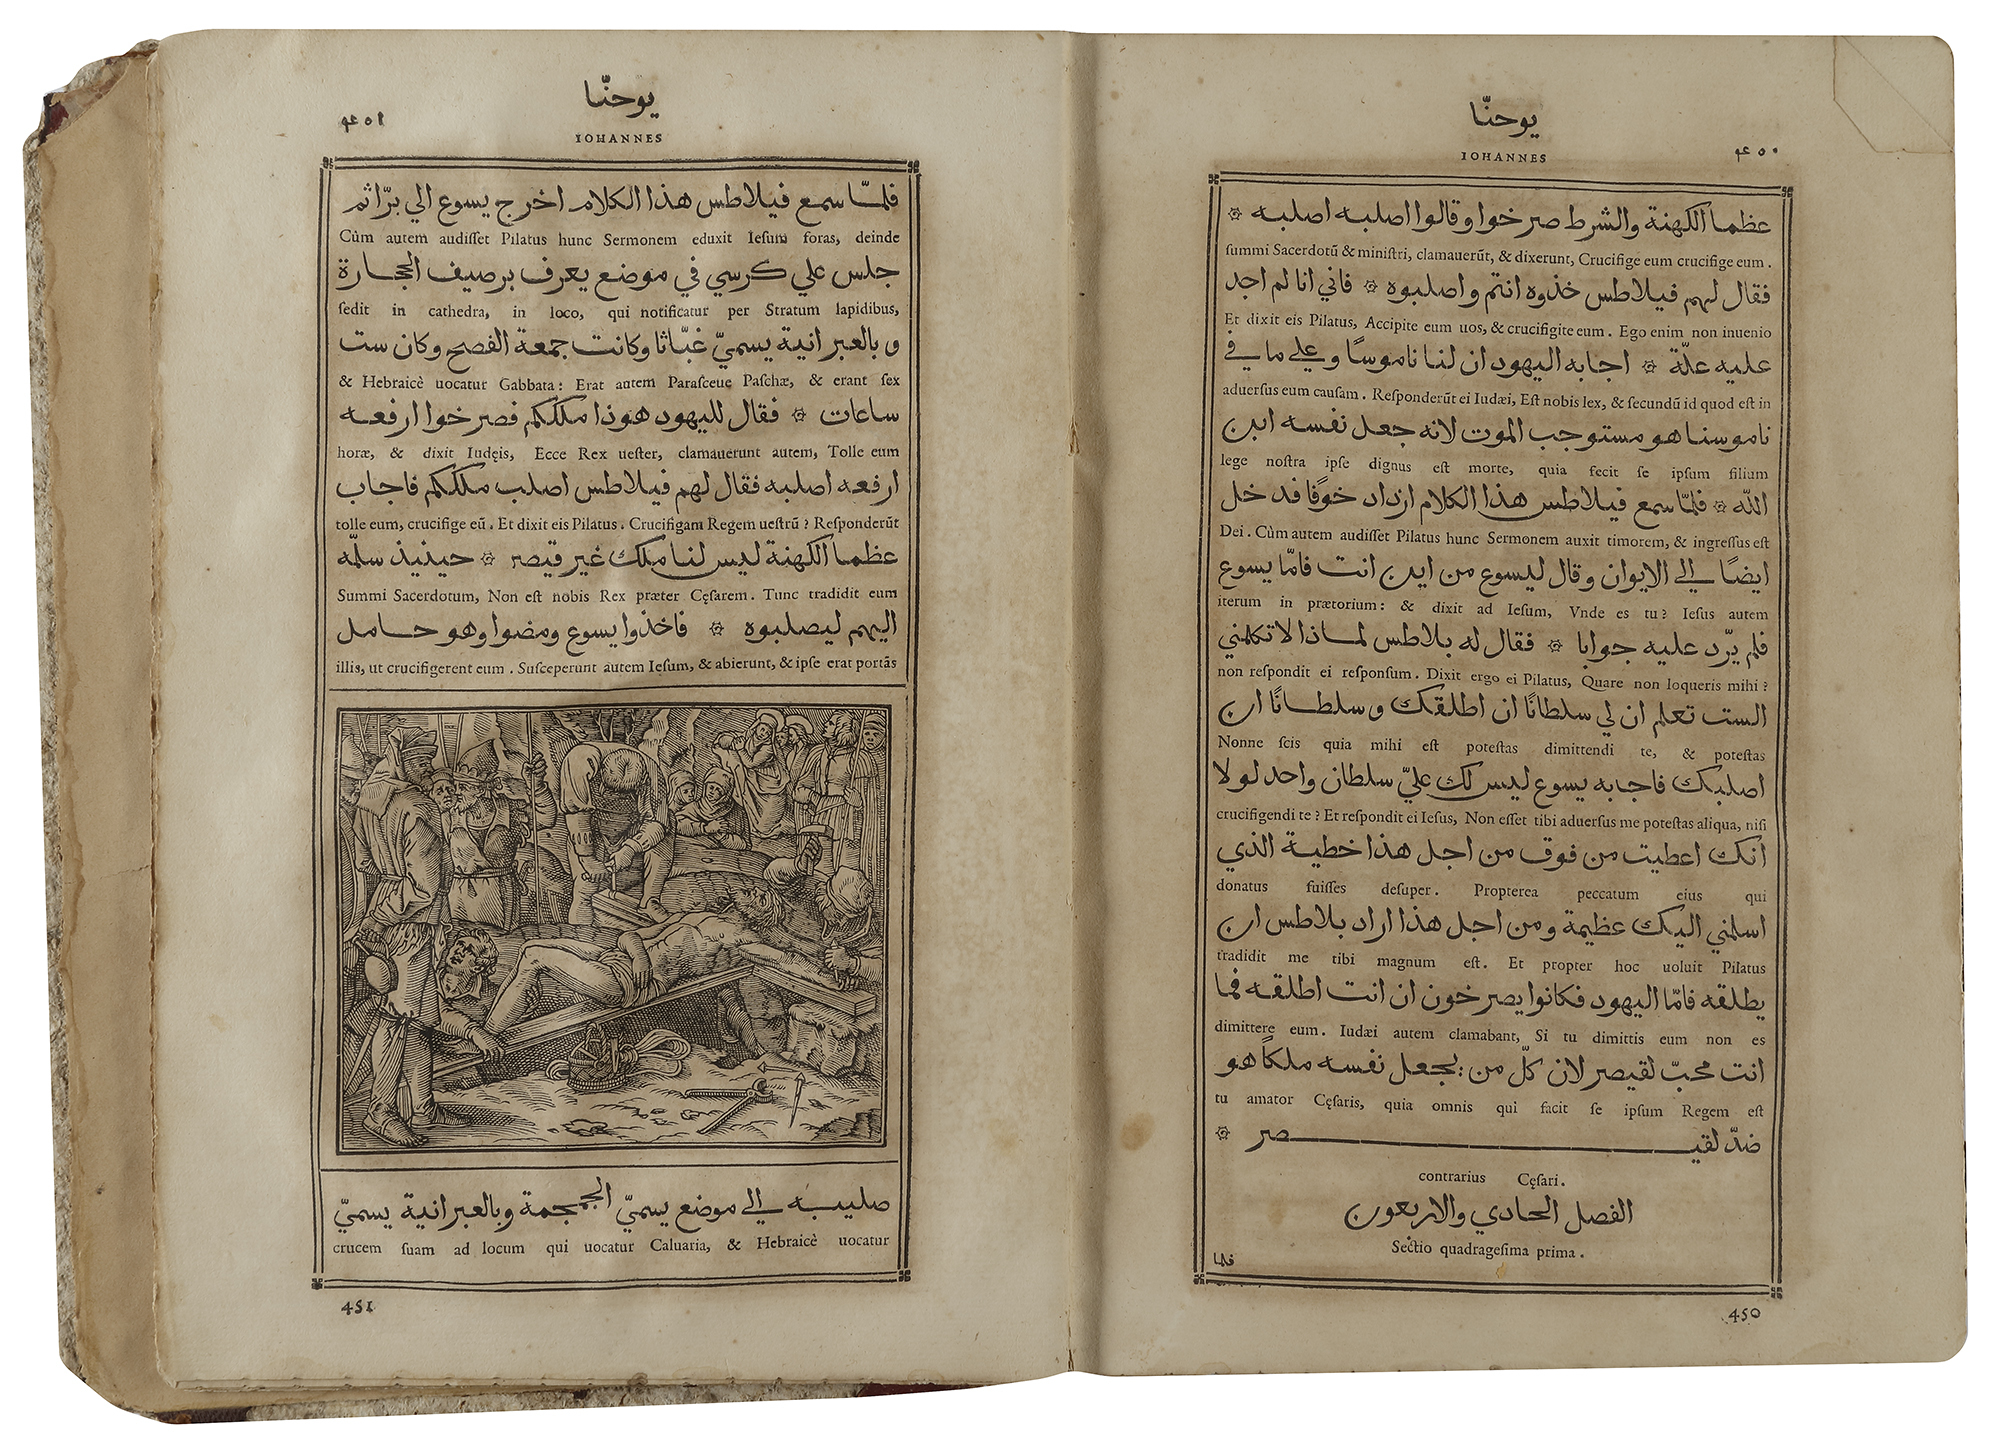 يوحنّا
٤٥٠
IOHANNES
عظما الكهنة والشرط صرخوا وقالوا اصلبه اصلبه
summi Sacerdotū & miniſtri, clamauerūt, & dixerunt, Crucifige eum crucifige eum.
فقال لهم فيلاطس خذوه انتم واصلبوه فاني انا لم اجد
Et dixit eis Pilatus, Accipite eum uos, & crucifigite eum. Ego enim non inuenio
عليه علّة اجابه اليهود ان لنا ناموسًا وعلي ما في
aduerſus eum cauſam. Reſponderūt ei Iudæi, Eſt nobis lex, & ſecundū id quod eſt in
ناموسنا هو مستوجب الموت لانه جعل نفسه ابن
lege noſtra ipſe dignus eſt morte, quia fecit ſe ipſum filium
الله فلمّا سمع فيلاطس هذا الكلام ازداد خوفًا فدخل
Dei. Cùm autem audiſſet Pilatus hunc Sermonem auxit timorem, & ingreſſus eſt
ايضًا الي الايوان وقال ليسوع من اين انت فامّا يسوع
iterum in prætorium: & dixit ad Ieſum, Vnde es tu? Ieſus autem
فلم يرّد عليه جوابا فقال له بلاطس لماذا لا تكلمني
non reſpondit ei reſponſum. Dixit ergo ei Pilatus, Quare non loqueris mihi?
الست تعلم ان لي سلطانًا ان اطلقك وسلطانًا ان
Nonne ſcis quia mihi eſt poteſtas dimittendi te, & poteſtas
اصلبك فاجابه يسوع ليس لك عليّ سلطان واحد لولا
crucifigendi te? Et reſpondit ei Ieſus, Non eſſet tibi aduerſus me poteſtas aliqua, niſi
انك اعطيت من فوق من اجل هذا خطية الذي
donatus fuiſſes deſuper. Propterea peccatum eius qui
اسلمني اليك عظيمة ومن اجل هذا اراد بلاطس ان
tradidit me tibi magnum eſt. Et propter hoc uoluit Pilatus
يطلقه فامّا اليهود فكانوا يصرخون ان انت اطلقه فما
dimittere eum. Iudæi autem clamabant, Si tu dimittis eum non es
انت محبّ لقيصر لان كلّ من يجعل نفسه ملكًا هو
tu amator Cęſaris, quia omnis qui facit ſe ipſum Regem eſt
ضدّ لقيـــصر
contrarius Cęſari.
الفصل الحادي والاربعون
Sectio quadrageſima prima.
فلما
450
يوحنّا
٤٥١
IOHANNES
فلمّا سمع فيلاطس هذا الكلام اخرج يسوع الي برّا ثم
Cùm autem audiſſet Pilatus hunc Sermonem eduxit Ieſum foras, deinde
جلس علي كرسي في موضع يعرف برصيف الحجارة
ſedit in cathedra, in loco, qui notificatur per Stratum lapidibus,
وبالعبرانية يسميّ غبّاثا وكانت جمعة الفصح وكان ست
& Hebraicè uocatur Gabbata: Erat autem Paraſceue Paſchæ, & erant ſex
ساعات فقال لليهود هوذا ملككم فصرخوا ارفعه
horæ, & dixit Iudęis, Ecce Rex ueſter, clamauerunt autem, Tolle eum
ارفعه اصلبه فقال لهم فيلاطس اصلب ملككم فاجاب
tolle eum, crucifige eū. Et dixit eis Pilatus. Crucifigam Regem ueſtrū? Reſponderūt
عظما الكهنة ليس لنا ملك غير قيصر حينيذ سلّمه
Summi Sacerdotum, Non eſt nobis Rex præter Cęſarem. Tunc tradidit eum
اليهم ليصلبوه فاخذوا يسوع ومضوا وهو حامل
illis, ut crucifigerent eum. Suſceperunt autem Ieſum, & abierunt, & ipſe erat portās
صليبه الي موضع يسميّ الجمجمة وبالعبرانية يسميّ
crucem ſuam ad locum qui uocatur Caluaria, & Hebraicè uocatur
451